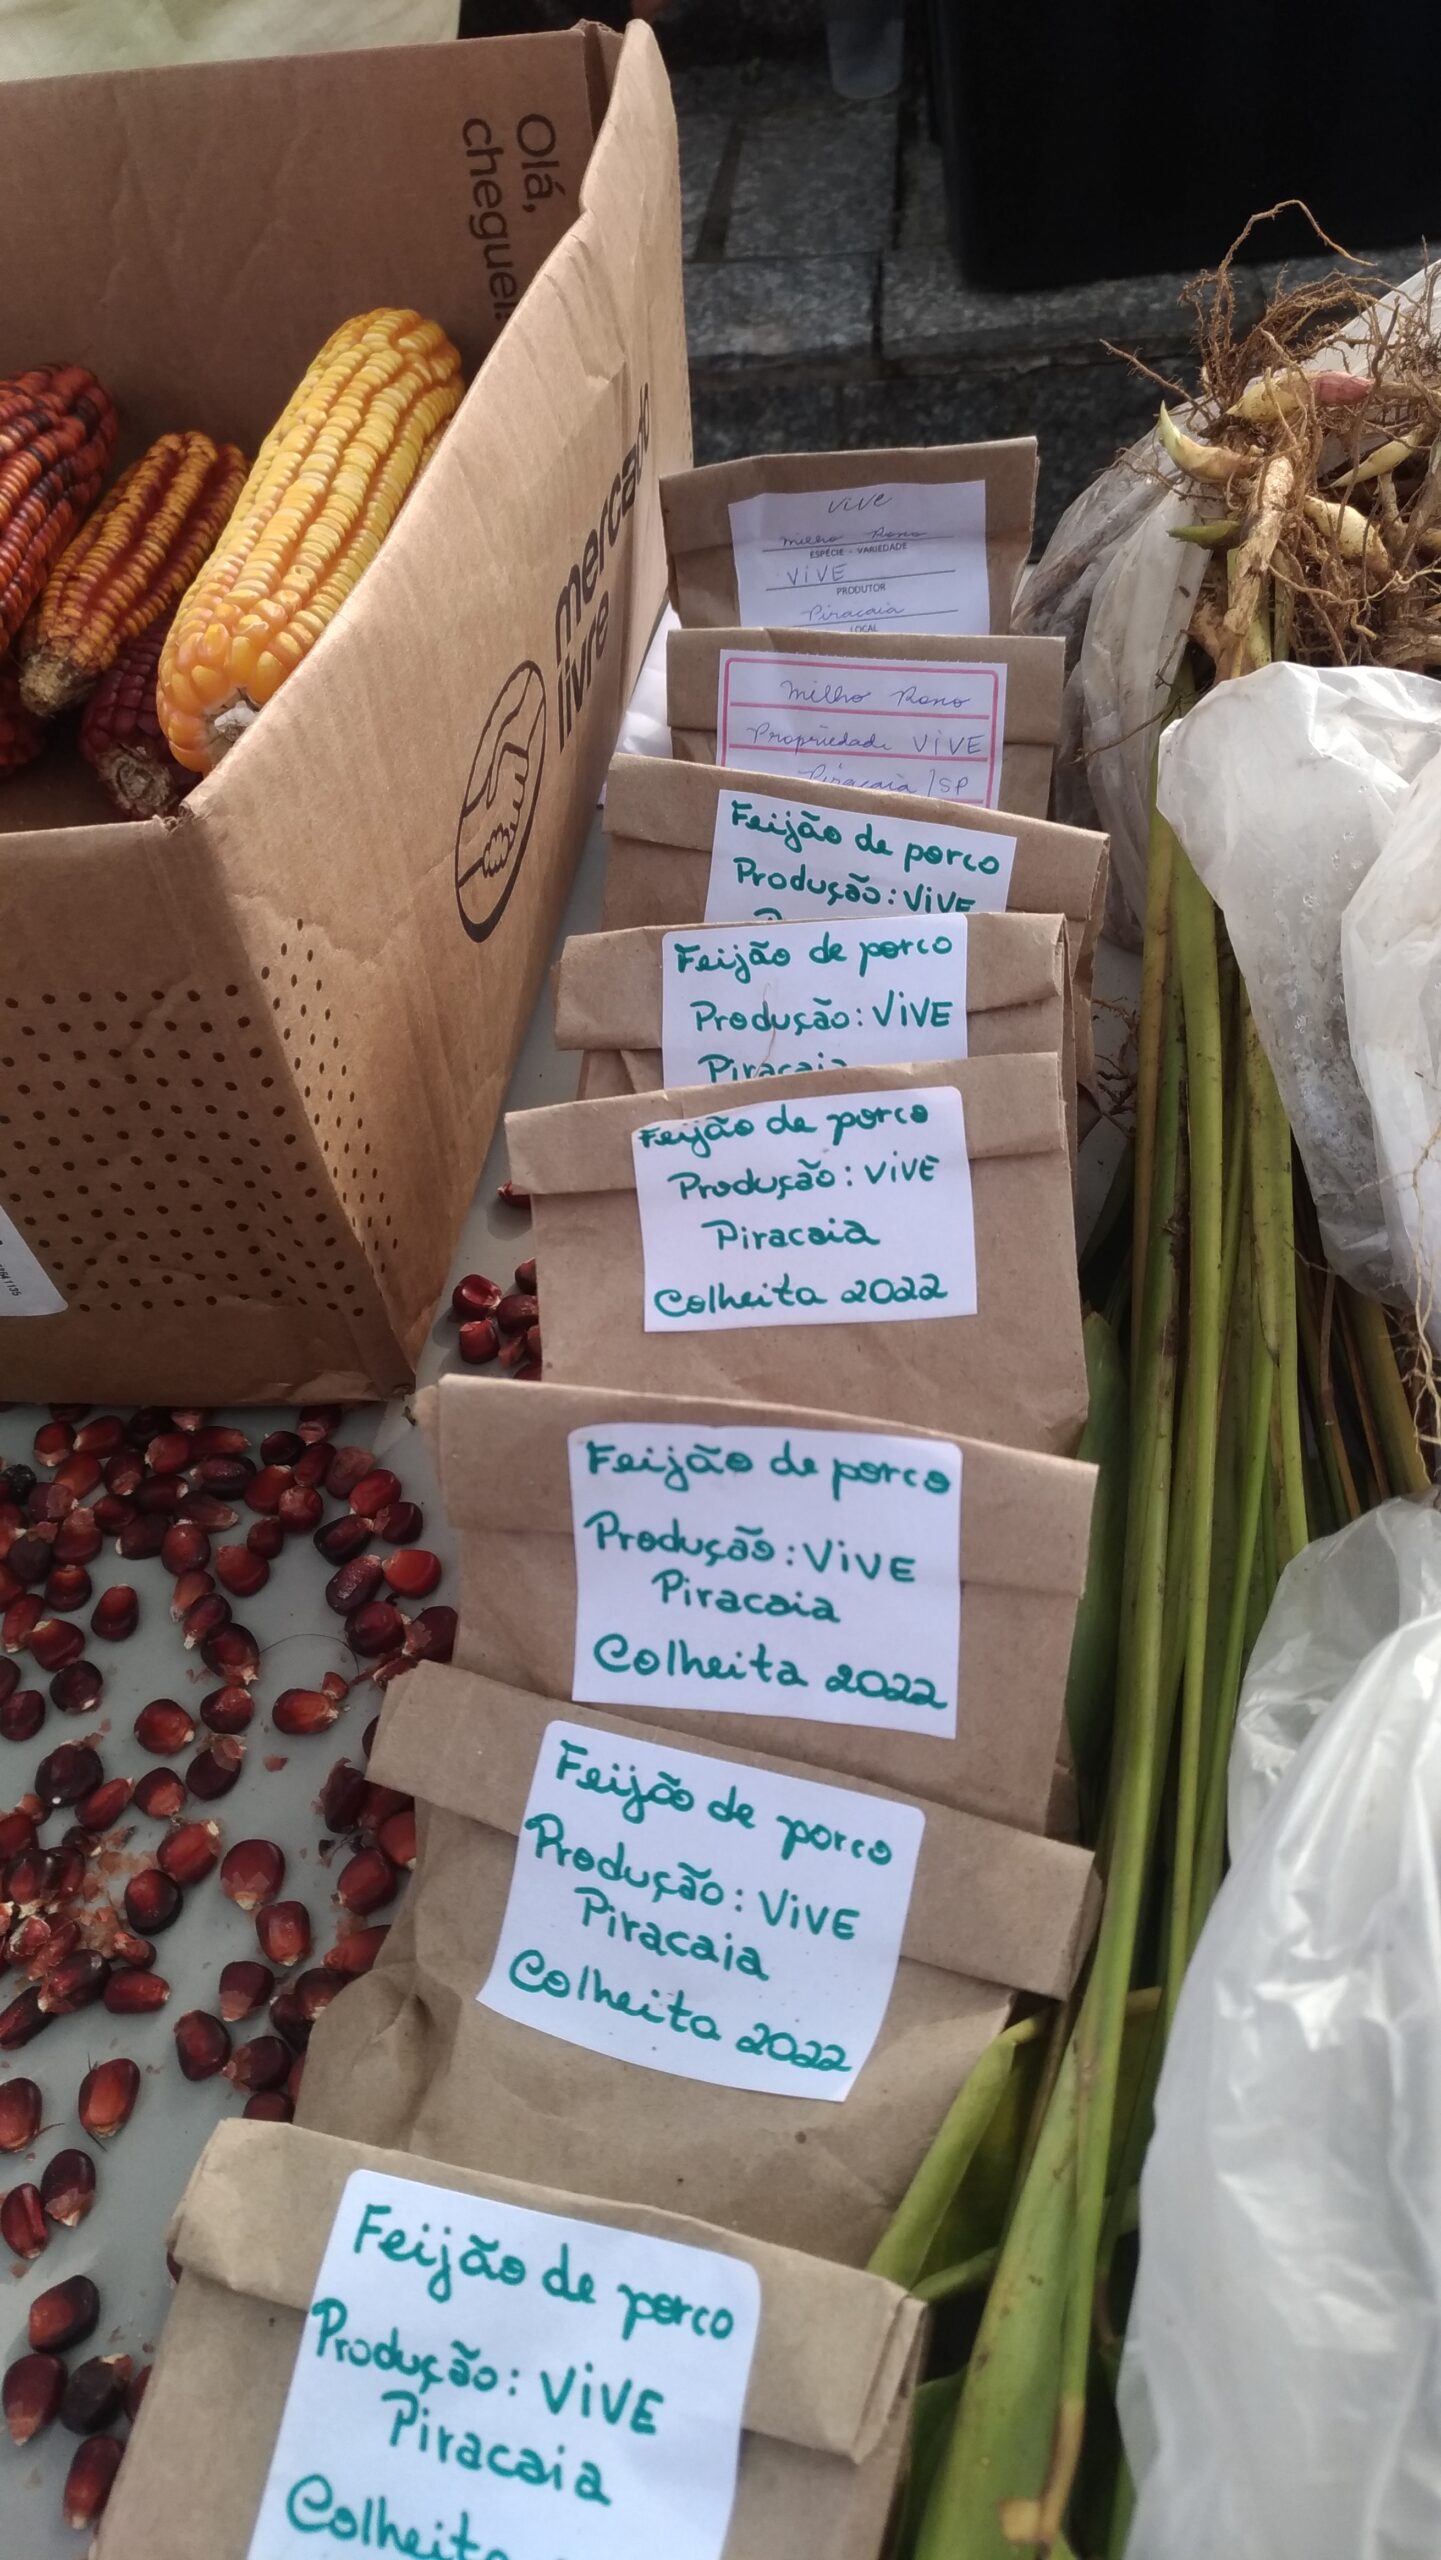 Olá,
cheguei!
mercado
livre
vive
milho Roxo
ESPÉCIE - VARIEDADE
ViVE
PRODUTOR
Piracaia
LOCAL
milho Roxo
Propriedade ViVE
Piracaia/SP
Feijão de porco
Produção: ViVE
Feijão de porco
Produção: ViVE
Piracaia
Feijão de porco
Produção: ViVE
Piracaia
Colheita 2022
Feijão de porco
Produção: ViVE
Piracaia
Colheita 2022
Feijão de porco
Produção: ViVE
Piracaia
Colheita 2022
Feijão de porco
Produção: ViVE
Piracaia
Colheita